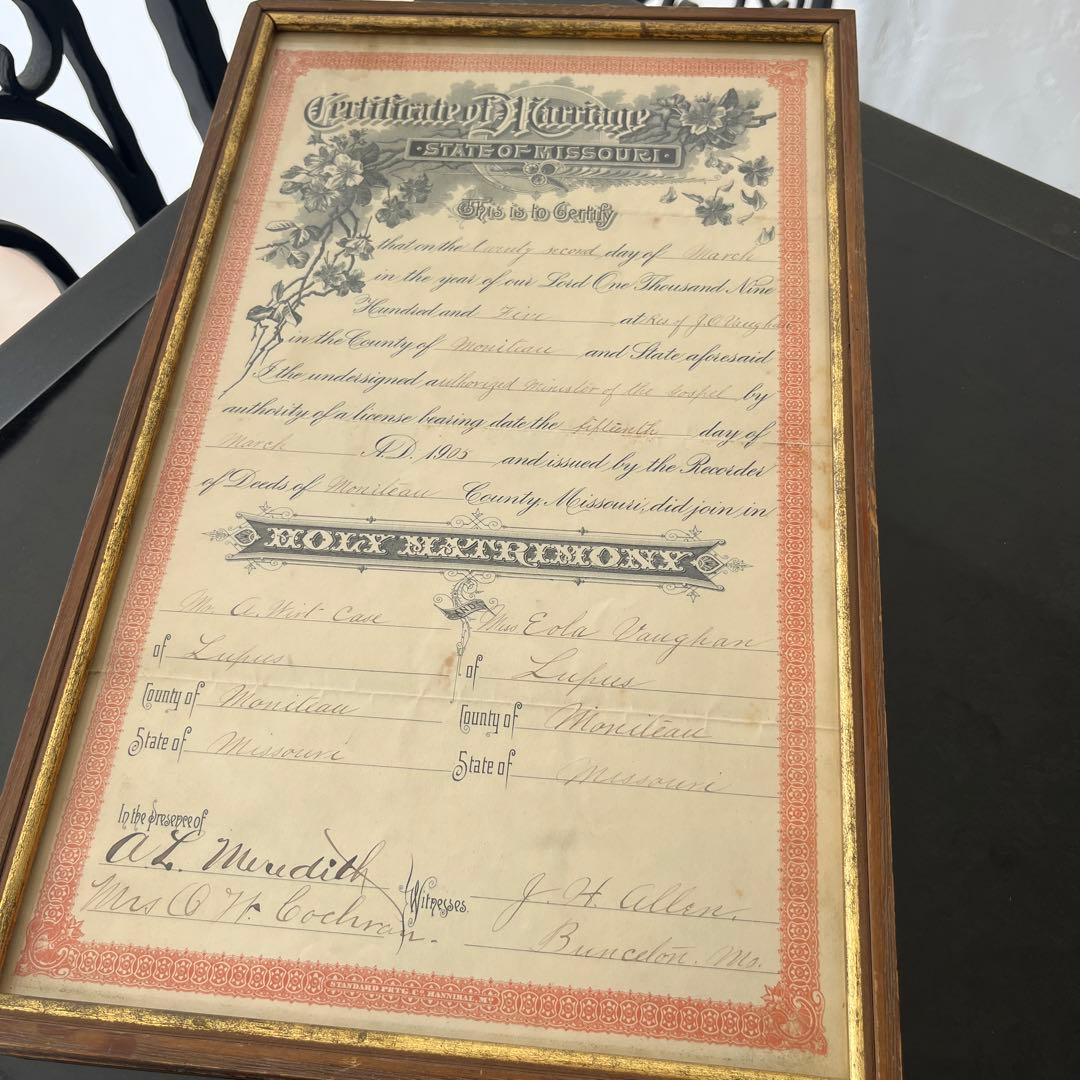 Certificate of Marriage
· STATE OF MISSOURI ·
This is to Certify
that on the twenty second day of March
in the year of our Lord One Thousand Nine
Hundred and Five at Res of J.O. Vaughan
in the County of Moniteau and State aforesaid
I the undersigned authorized Minister of the Gospel by
authority of a license bearing date the fifteenth day of
March A.D. 1905 and issued by the Recorder
of Deeds of Moniteau County, Missouri, did join in
HOLY MATRIMONY
Mr. A. Wirt Case AND Miss Eola Vaughan
of Lupus of Lupus
County of Moniteau County of Moniteau
State of Missouri State of Missouri
In the Presence of
A L Meredith
Witnesses. J. H. Allen.
Mrs O W. Cochran. Bunceton. Mo.
STANDARD PRTG. HANNIBAL MO